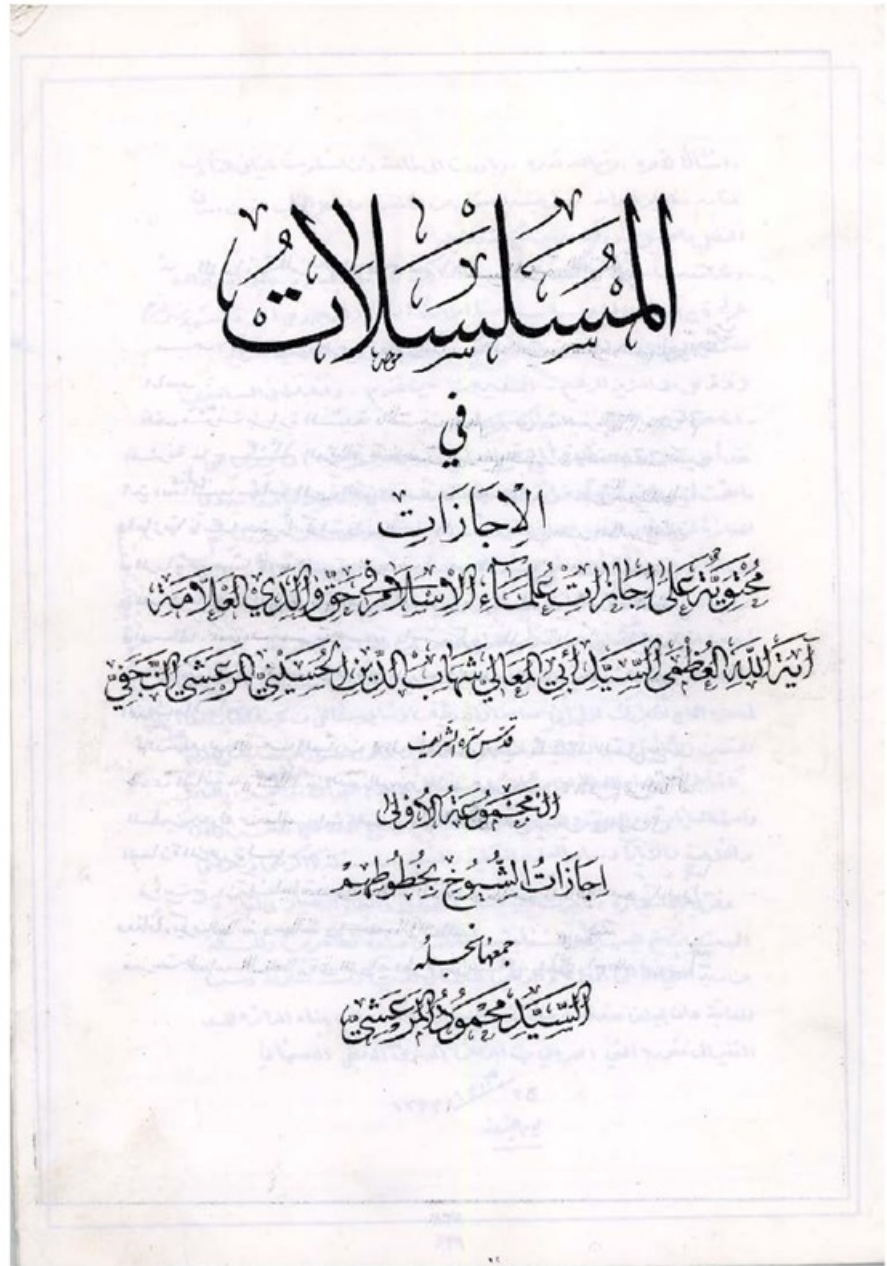 المُسَلسَلاتُ
في
الإجَازَاتِ
مُحْتَوِيَّةٌ عَلى إجَازاتِ عُلمَاءِ الإسْلامِ في حَقِّ وَالِدي العَلّامَة
آيَة اللهِ العُظمى السَّيِّد أبي المَعالي شَهابِ الدِّينِ الحُسَيْنيّ المَرعَشيّ النَّجَفيّ
قدّس سرّه الشريف
المَجْمُوعَة الأُولى
إجَازَاتُ الشُيُوخِ بِخُطُوطِهِمْ
جمعها نجله
السَّيِّد مَحْمُودُ المَرْعَشيّ